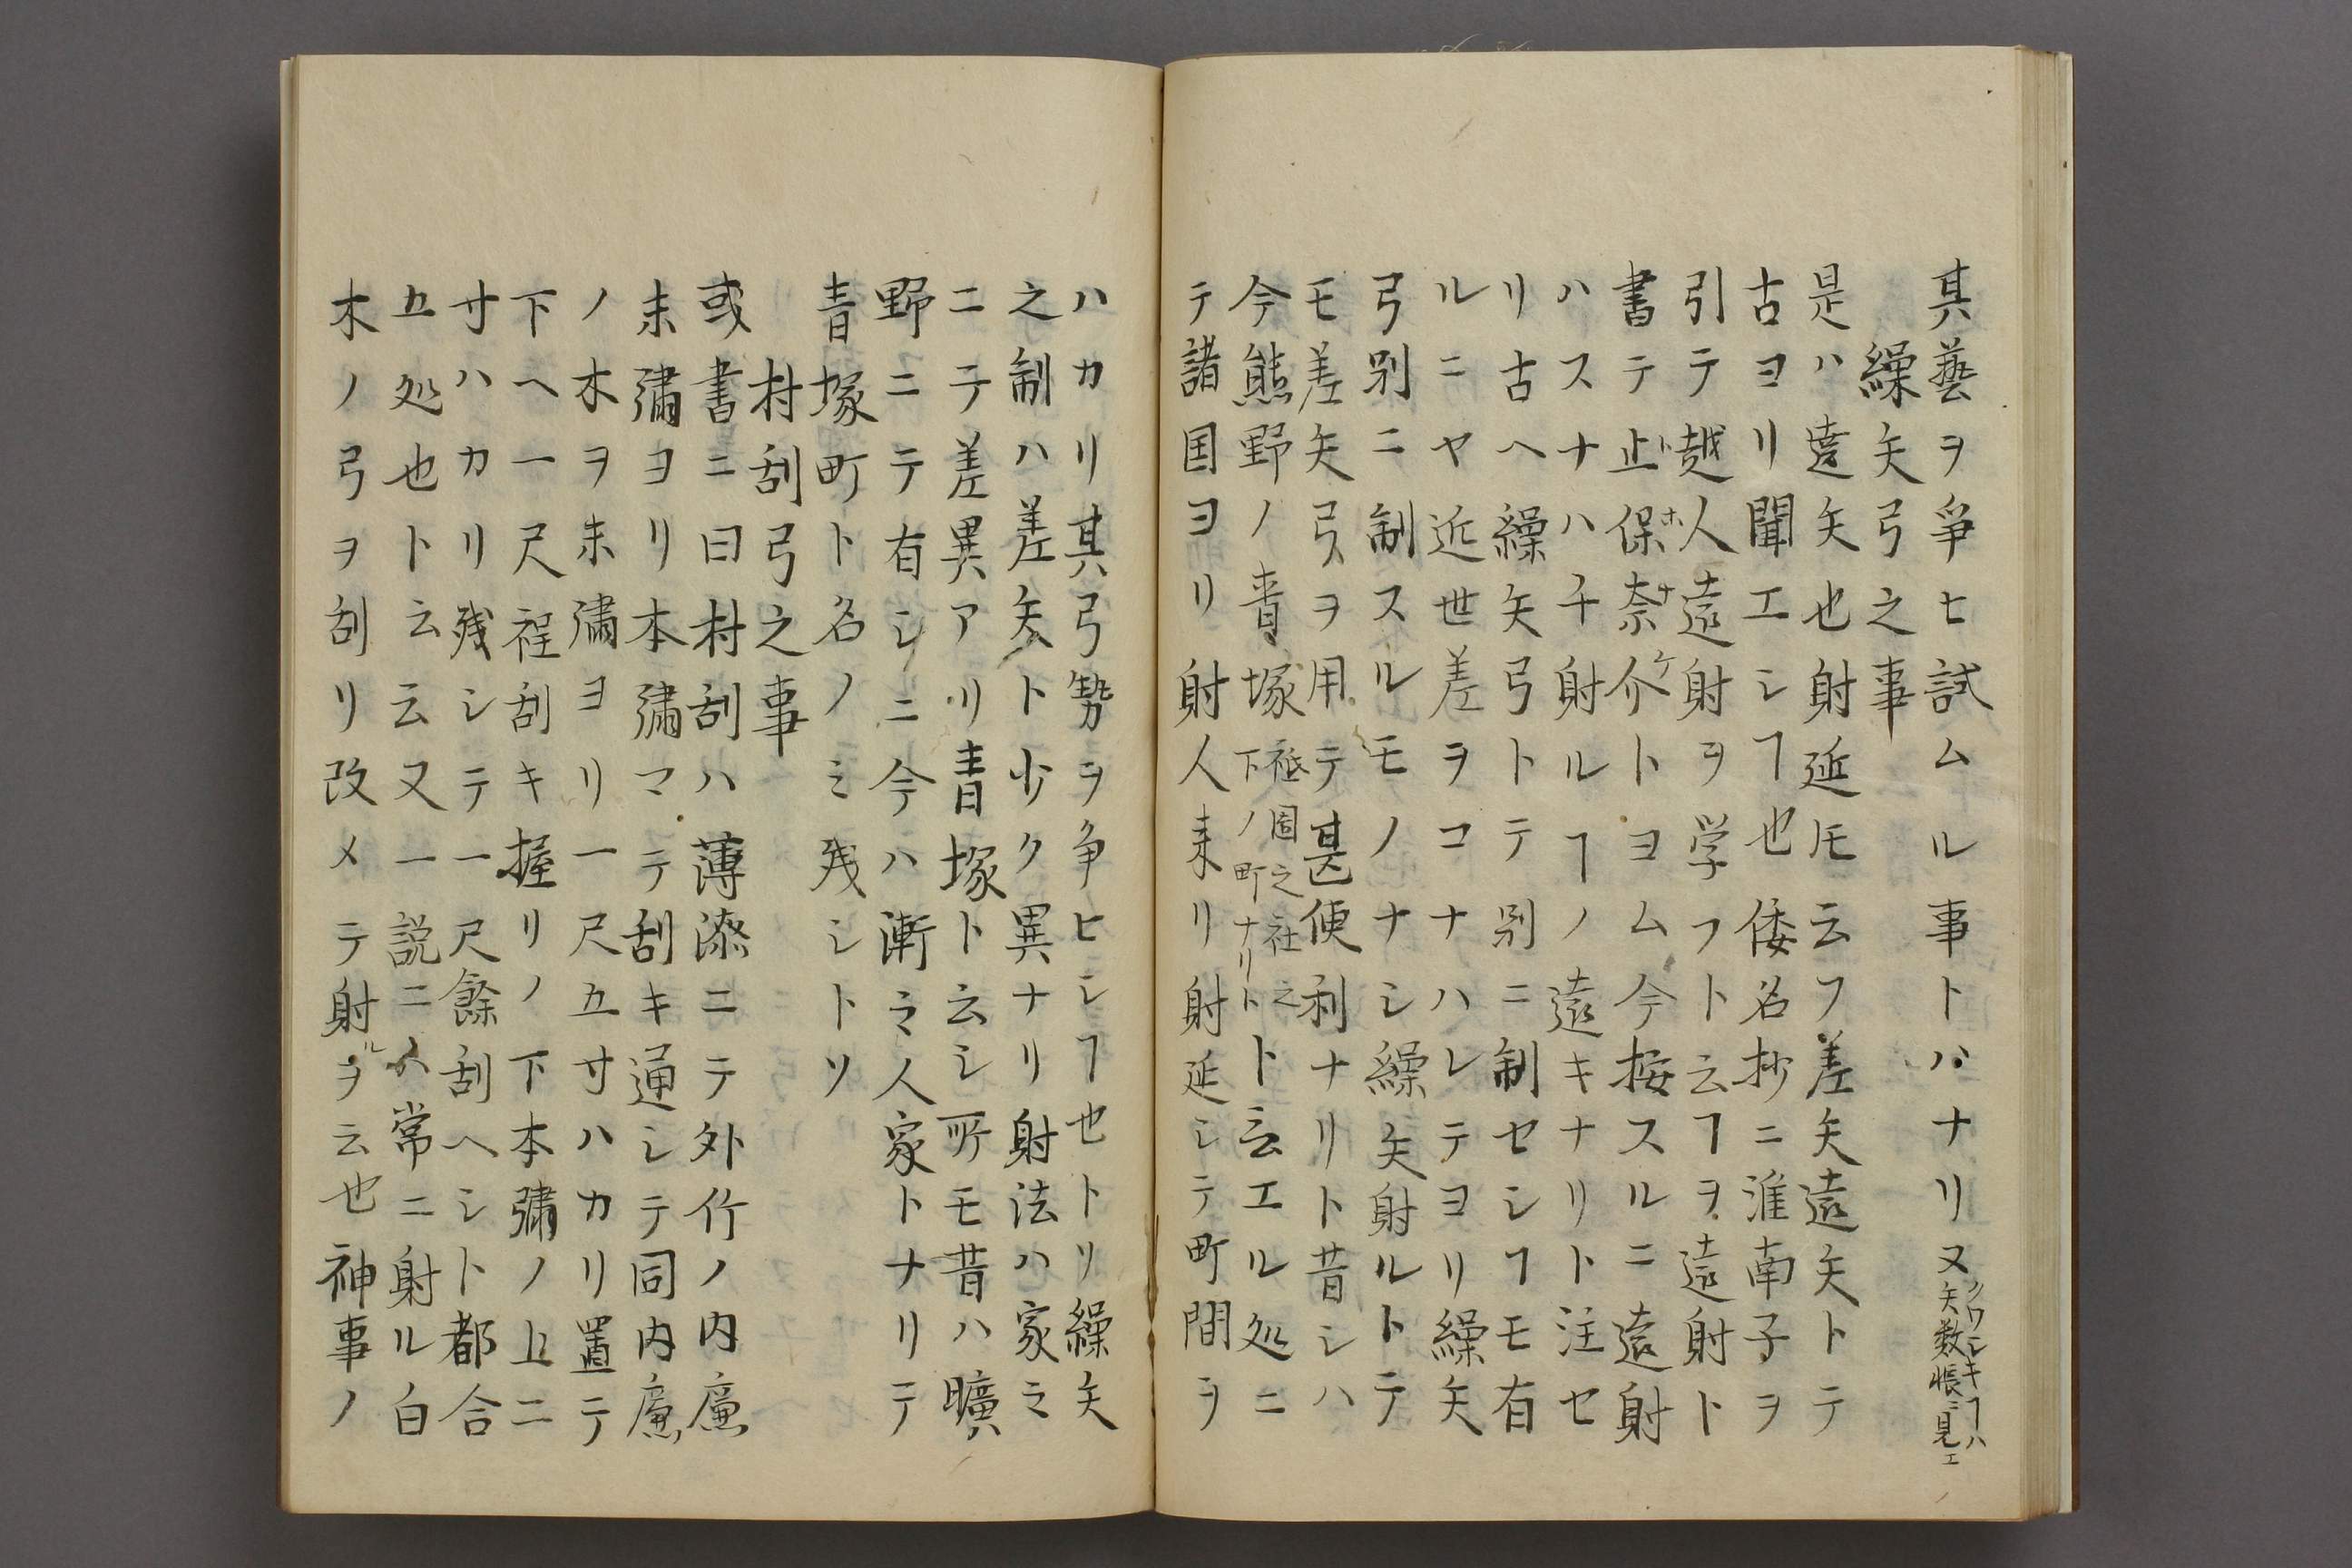 其藝ヲ爭ヒ試ムル事トバナリヌ クワシキヿハ矢数帳ニ見エ
繰矢弓之事
是ハ遠矢也射延𪜈云フ差矢遠矢トテ
古ヨリ聞エシヿ也倭名抄ニ淮南子ヲ
引テ越人遠射ヲ学フト云ヿヲ遠射ト
書テ止ト保ホ奈ナ介ケトヨム今按スルニ遠射
ハスナハチ射ルヿノ遠キナリト注セ
リ古ヘ繰矢弓トテ別ニ制セシヿモ有
ルニヤ近世差ヲコナハレテヨリ繰矢
弓別ニ制スルモノナシ繰矢射ルトテ
モ差矢弓ヲ用テ甚便利ナリト昔シハ
今熊野ノ青塚 祇園之社之下ノ町ナリト ト云エル処ニ
テ諸国ヨリ射人来リ射延シテ町間ヲ
ハカリ其弓勢ヲ争ヒシヿ也トリ繰矢
之制ハ差矢ト少ク異ナリ射法ハ家〻
ニテ差異アリ青塚ト云シ所モ昔ハ曠
野ニテ有シニ今ハ漸〻人家トナリテ
青塚町ト名ノミ残シトソ
村刮弓之事
或書ニ曰村刮ハ薄漆ニテ外竹ノ内廉
末彇ヨリ本彇マテ刮キ通シテ同内廉
ノ木ヲ末彇ヨリ一尺五寸ハカリ置テ
下ヘ一尺程刮キ握リノ下本彇ノ上ニ
寸ハカリ残シテ一尺餘刮ヘシト都合
五処也ト云云又一説ニハ常ニ射ル白
木ノ弓ヲ刮リ改メテ射ルヲ云也神事ノ